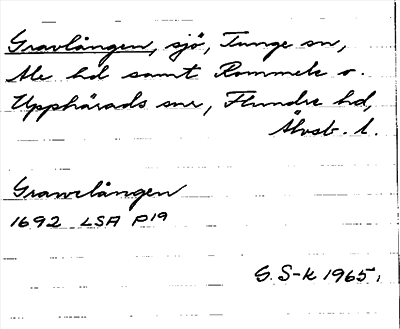 Gravlången, sjö, Tunge sn,
Ale hd samt Rommele o.
Upphärads snr, Flundre hd,
Älvsb. l.
Grawelången
1692 LSA P19
G. S-k 1965.